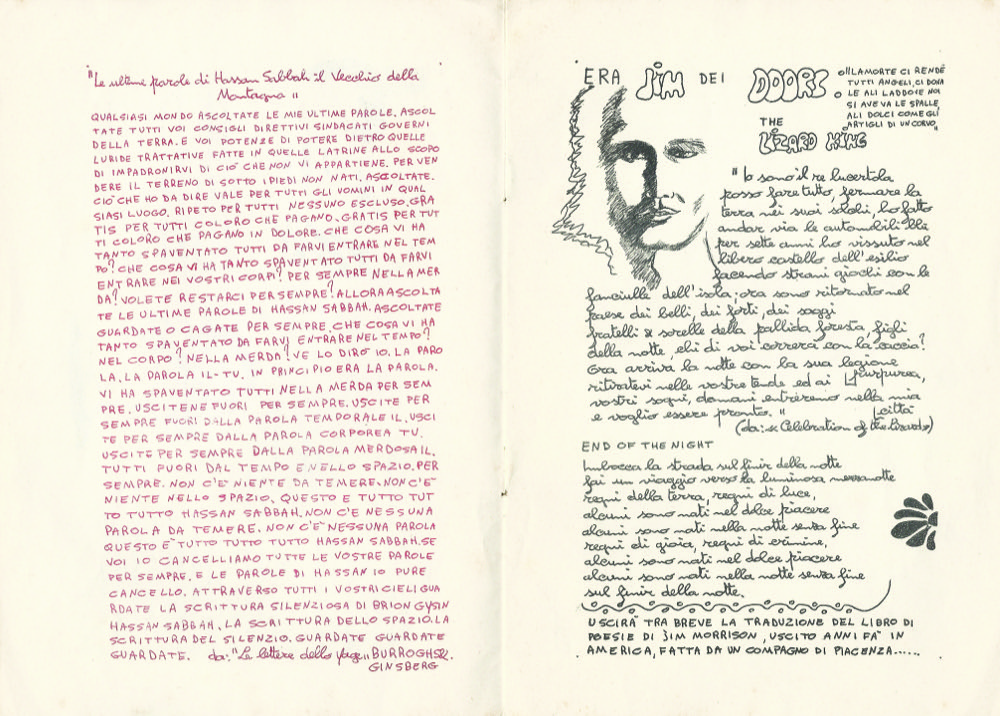 "Le ultime parole di Hassan Sabbah il Vecchio della
Montagna "
QUALSIASI MONDO ASCOLTATE LE MIE ULTIME PAROLE. ASCOL
TATE TUTTI VOI CONSIGLI DIRETTIVI SINDACATI GOVERNI
DELLA TERRA. E VOI POTENZE DI POTERE DIETRO QUELLE
LURIDE TRATTATIVE FATTE IN QUELLE LATRINE ALLO SCOPO
DI IMPADRONIRVI DI CIO' CHE NON VI APPARTIENE. PER VEN
DERE IL TERRENO DI SOTTO I PIEDI NON NATI. ASCOLTATE.
CIO' CHE HO DA DIRE VALE PER TUTTI GLI UOMINI IN QUAL
SIASI LUOGO. RIPETO PER TUTTI NESSUNO ESCLUSO. GRA
TIS PER TUTTI COLORO CHE PAGANO. GRATIS PER TUT
TI COLORO CHE PAGANO IN DOLORE. CHE COSA VI HA
TANTO SPAVENTATO TUTTI DA FARVI ENTRARE NEL TEM
PO? CHE COSA VI HA TANTO SPAVENTATO TUTTI DA FARVI
ENTRARE NEI VOSTRI CORPI? PER SEMPRE NELLA MER
DA? VOLETE RESTARCI PER SEMPRE? ALLORA ASCOLTA
TE LE ULTIME PAROLE DI HASSAN SABBAH. ASCOLTATE
GUARDATE O CAGATE PER SEMPRE. CHE COSA VI HA
TANTO SPAVENTATO DA FARVI ENTRARE NEL TEMPO?
NEL CORPO? NELLA MERDA? VE LO DIRO' IO. LA PARO
LA. LA PAROLA IL-TU. IN PRINCIPIO ERA LA PAROLA.
VI HA SPAVENTATO TUTTI NELLA MERDA PER SEM
PRE. USCITENE FUORI PER SEMPRE. USCITE PER
SEMPRE FUORI DALLA PAROLA TEMPORALE IL. USCI
TE PER SEMPRE DALLA PAROLA CORPOREA TU.
USCITE PER SEMPRE DALLA PAROLA MERDOSA IL.
TUTTI FUORI DAL TEMPO E NELLO SPAZIO. PER
SEMPRE. NON C'E' NIENTE DA TEMERE. NON C'E'
NIENTE NELLO SPAZIO. QUESTO E TUTTO TUT
TO TUTTO HASSAN SABBAH. NON C'E NESSUNA
PAROLA DA TEMERE. NON C'E' NESSUNA PAROLA
QUESTO E' TUTTO TUTTO TUTTO HASSAN SABBAH. SE
VOI IO CANCELLIAMO TUTTE LE VOSTRE PAROLE
PER SEMPRE. E LE PAROLE DI HASSAN IO PURE
CANCELLO. ATTRAVERSO TUTTI I VOSTRI CIELI GUA
RDATE LA SCRITTURA SILENZIOSA DI BRION GYSIN
HASSAN SABBAH. LA SCRITTURA DELLO SPAZIO. LA
SCRITTURA DEL SILENZIO. GUARDATE GUARDATE
GUARDATE. da: "Le lettere dello yage" BURROGHS &
GINSBERG
ERA JIM DEI DOORS
"LA MORTE CI RENDE
TUTTI ANGELI, CI DONA
LE ALI LADDOVE NOI
SI AVEVA LE SPALLE,
ALI DOLCI COME GLI
ARTIGLI DI UN CORVO"
THE
LIZARD KING
"Io sono il re lucertola
posso fare tutto, fermare la
terra nei suoi solchi, ho fatto
andar via le automobili blu
per sette anni ho vissuto nel
libero castello dell'esilio
facendo strani giochi con le
fanciulle dell'isola; ora sono ritornato nel
paese dei belli, dei forti, dei saggi
fratelli & sorelle della pallida foresta, figli
della notte, chi di voi correrà con la caccia?
Ora arriva la notte con la sua legione
purpurea,
ritiratevi nelle vostre tende ed ai
vostri sogni, domani entreremo nella mia
città
e voglio essere pronto. "
(da: « Celebration of the lizard»)
END OF THE NIGHT
Imbocca la strada sul finir della notte
fai un viaggio verso la luminosa mezzanotte
regni della terra, regni di luce,
alcuni sono nati nel dolce piacere
alcuni sono nati nella notte senza fine
regni di gioia, regni di crimine,
alcuni sono nati nel dolce piacere
alcuni sono nati nella notte senza fine
sul finir della notte.
USCIRA' TRA BREVE LA TRADUZIONE DEL LIBRO DI
POESIE DI JIM MORRISON, USCITO ANNI FA' IN
AMERICA, FATTA DA UN COMPAGNO DI PIACENZA......